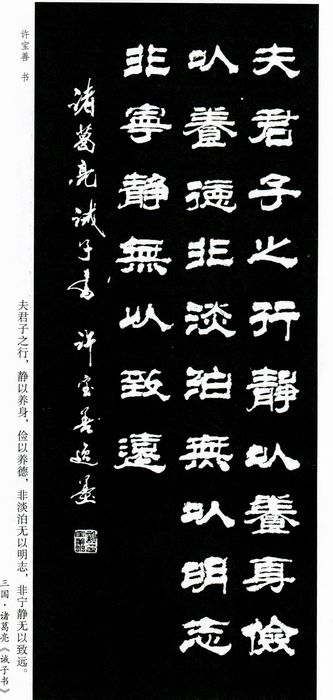 夫君子之行靜以養身儉
以養德非淡泊無以明志
非寧靜無以致遠
诸葛亮诫子书 许宝善 墨
许宝善 书
夫君子之行，静以养身，俭以养德，非淡泊无以明志，非宁静无以致远。
三国·诸葛亮《诫子书》